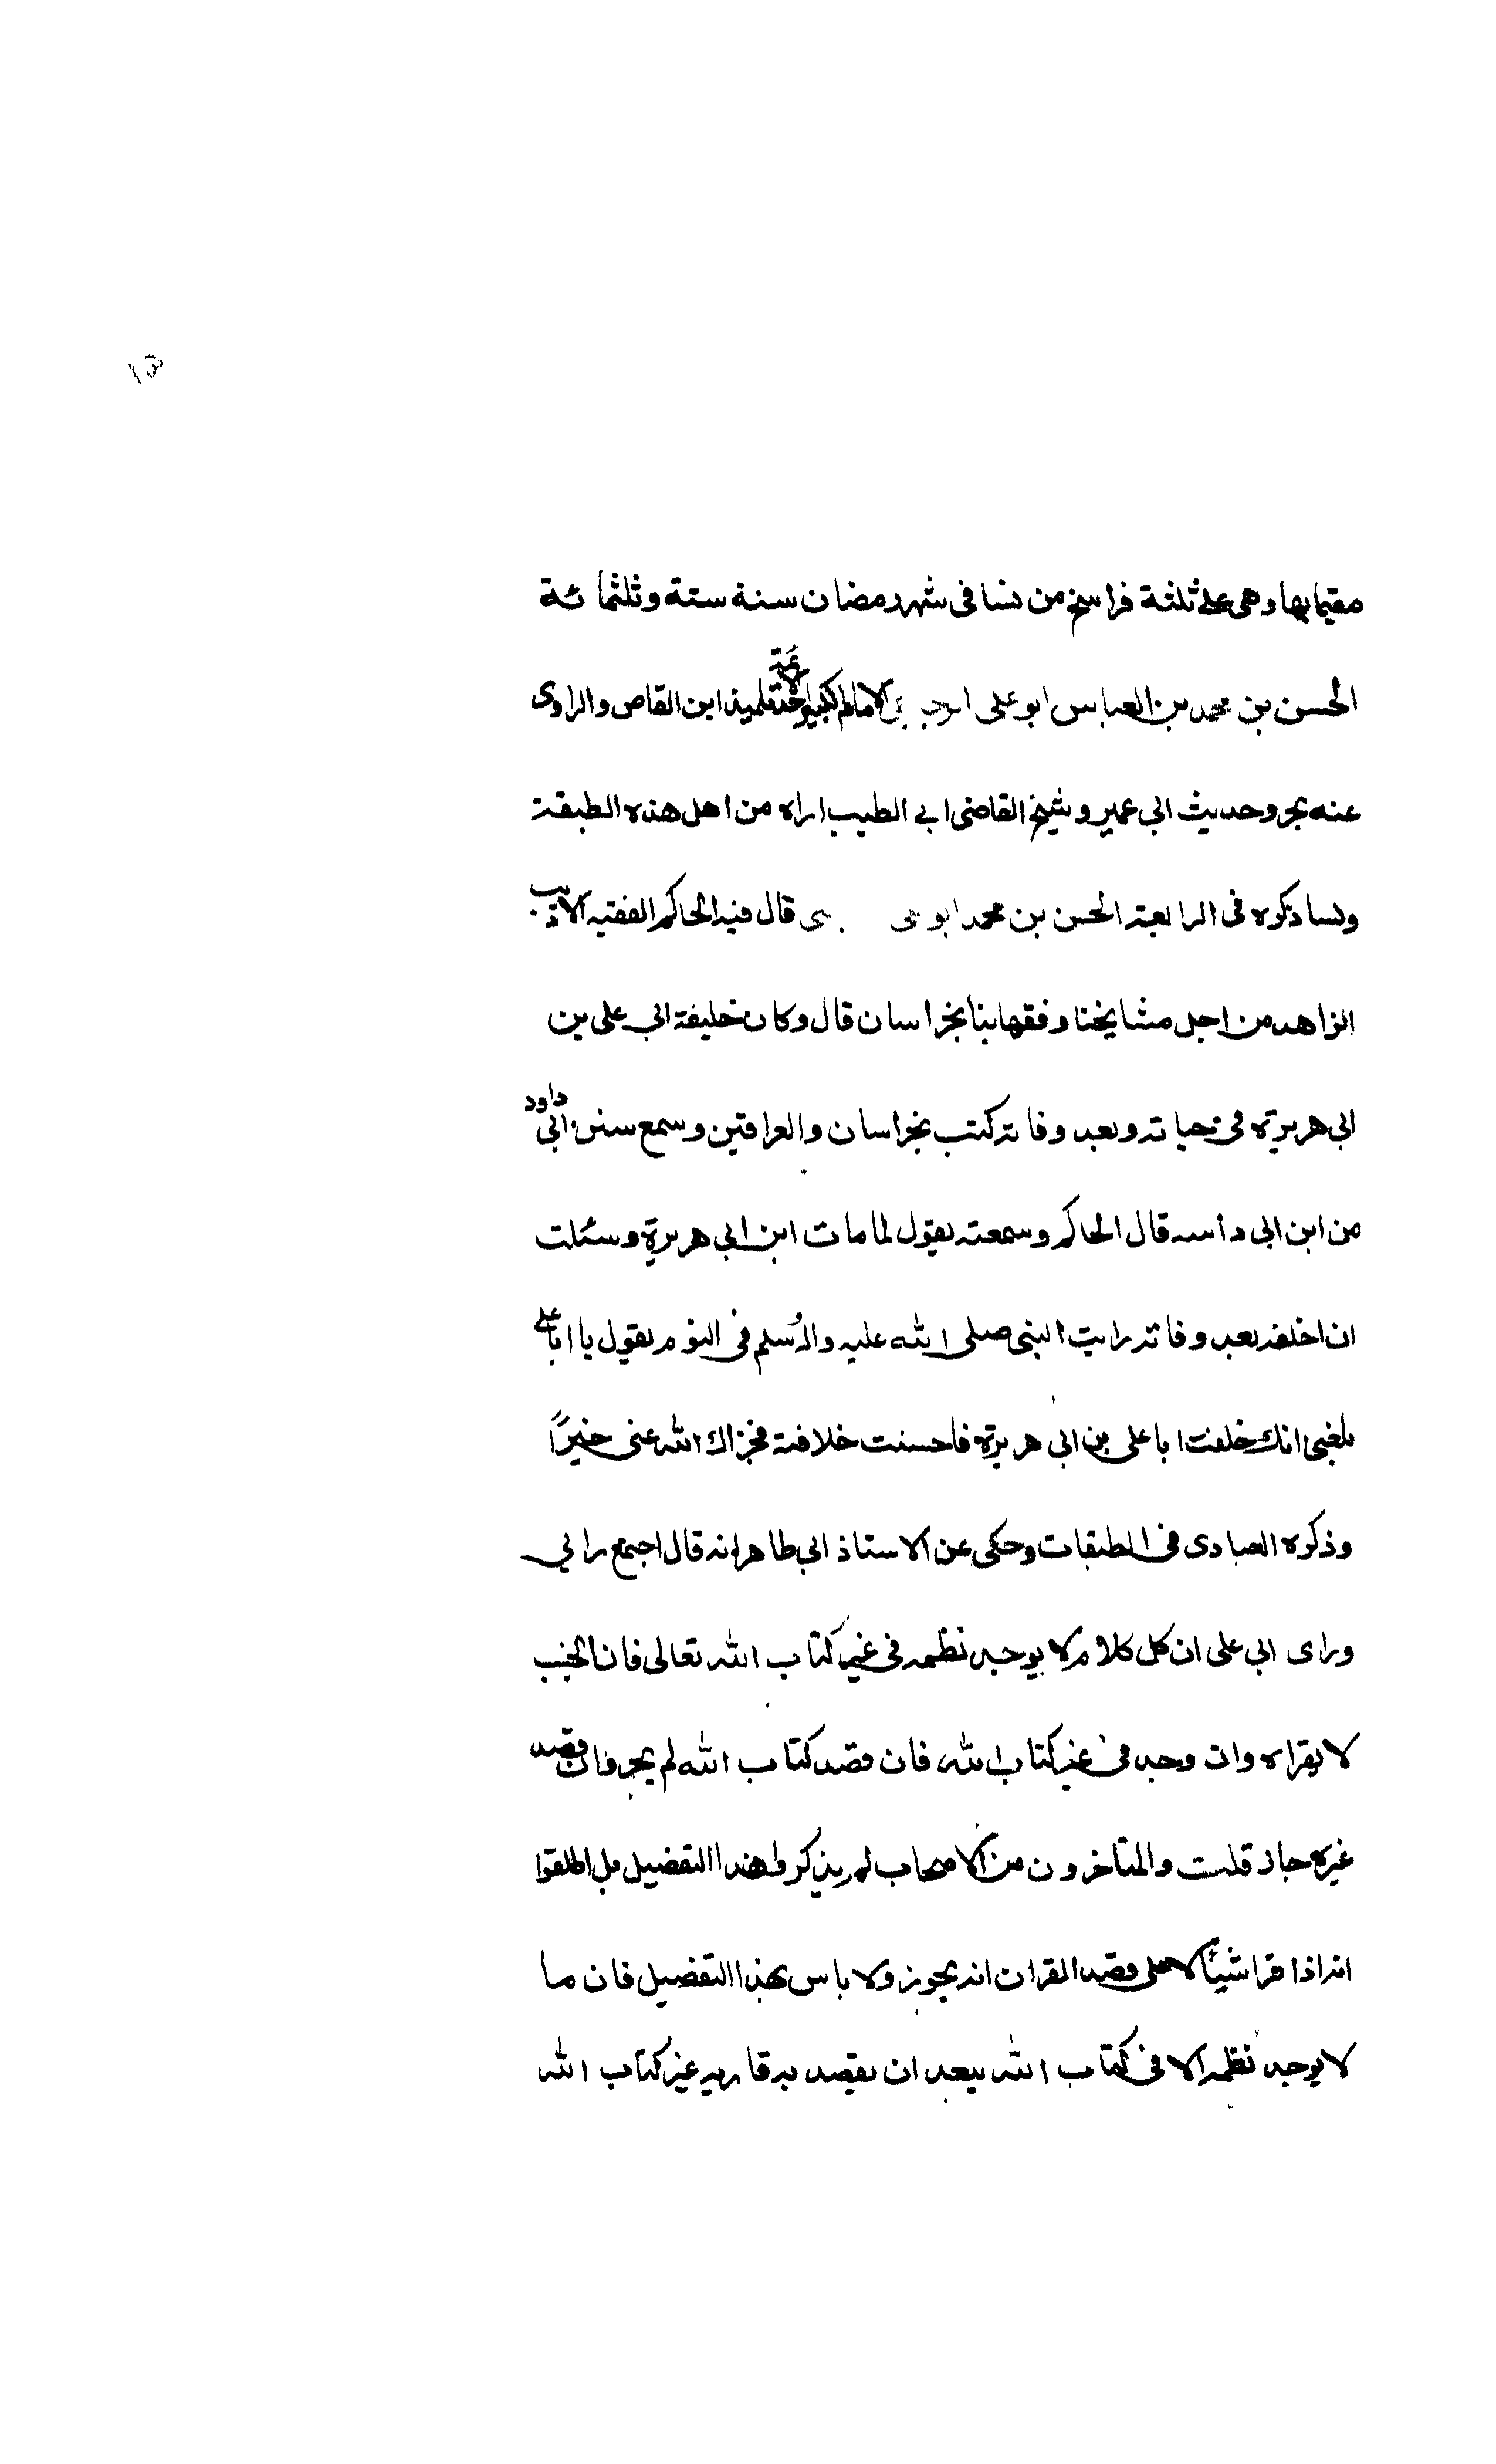 مقيما بها وهى على ثلثة فراسخ من نسا فى شهر رمضان سنة ستة وثلثمائة
الحسن بن محمد بن العباس ابو على الامام الكبير احد الائمة تلميذ ابن القاص والراوى
عنه بجزو حديث ابى عمير وشيخ القاضى ابى الطيب اراه من اهل هذه الطبقة
وسا ذكره فى الرابعة الحسن بن محمد ابو على قال فيه الحاكم الفقيه الاديب
الزاهد من اجل مشايخنا وفقهاينا بخراسان قال وكان خليفة ابى على بن
ابى هريرة فى حياته وبعد وفاته كتب بخراسان والعراقين وسمع سنن ابى داود
من ابن ابى داسه قال الحاكم وسمعته يقول لما مات ابن ابى هريرة وسئلت
ان اخلفه بعد وفاته رايت النبى صلى الله عليه واله وسلم فى النوم يقول يا ابا على
بلغنى انك خلفت ابا على بن ابى هريرة فاحسنت خلافته فجزاك الله عنى خيرًا
وذكره العبادى فى الطبقات وحكى عن الاستاذ ابى طاهر انه قال اجتمع رايي
وراى ابى على ان كل كلام لا يوجد نظمه فى غير كتاب الله تعالى فان الجنب
لا يقراه وان وجد فى غير كتاب الله فان قصد كتاب الله لم يجز وان قصد
غيره جاز قلت والمتاخرون من الاصحاب لم يذكروا هذا التفضيل بل اطلقوا
انه اذا قرا شيئًا لا على قصد القران انه يجوز ولا باس بهذا التفضيل فان ما
لا يوجد نظمه الا فى كتاب الله يبعد ان يقصد به قاريه غير كتاب الله